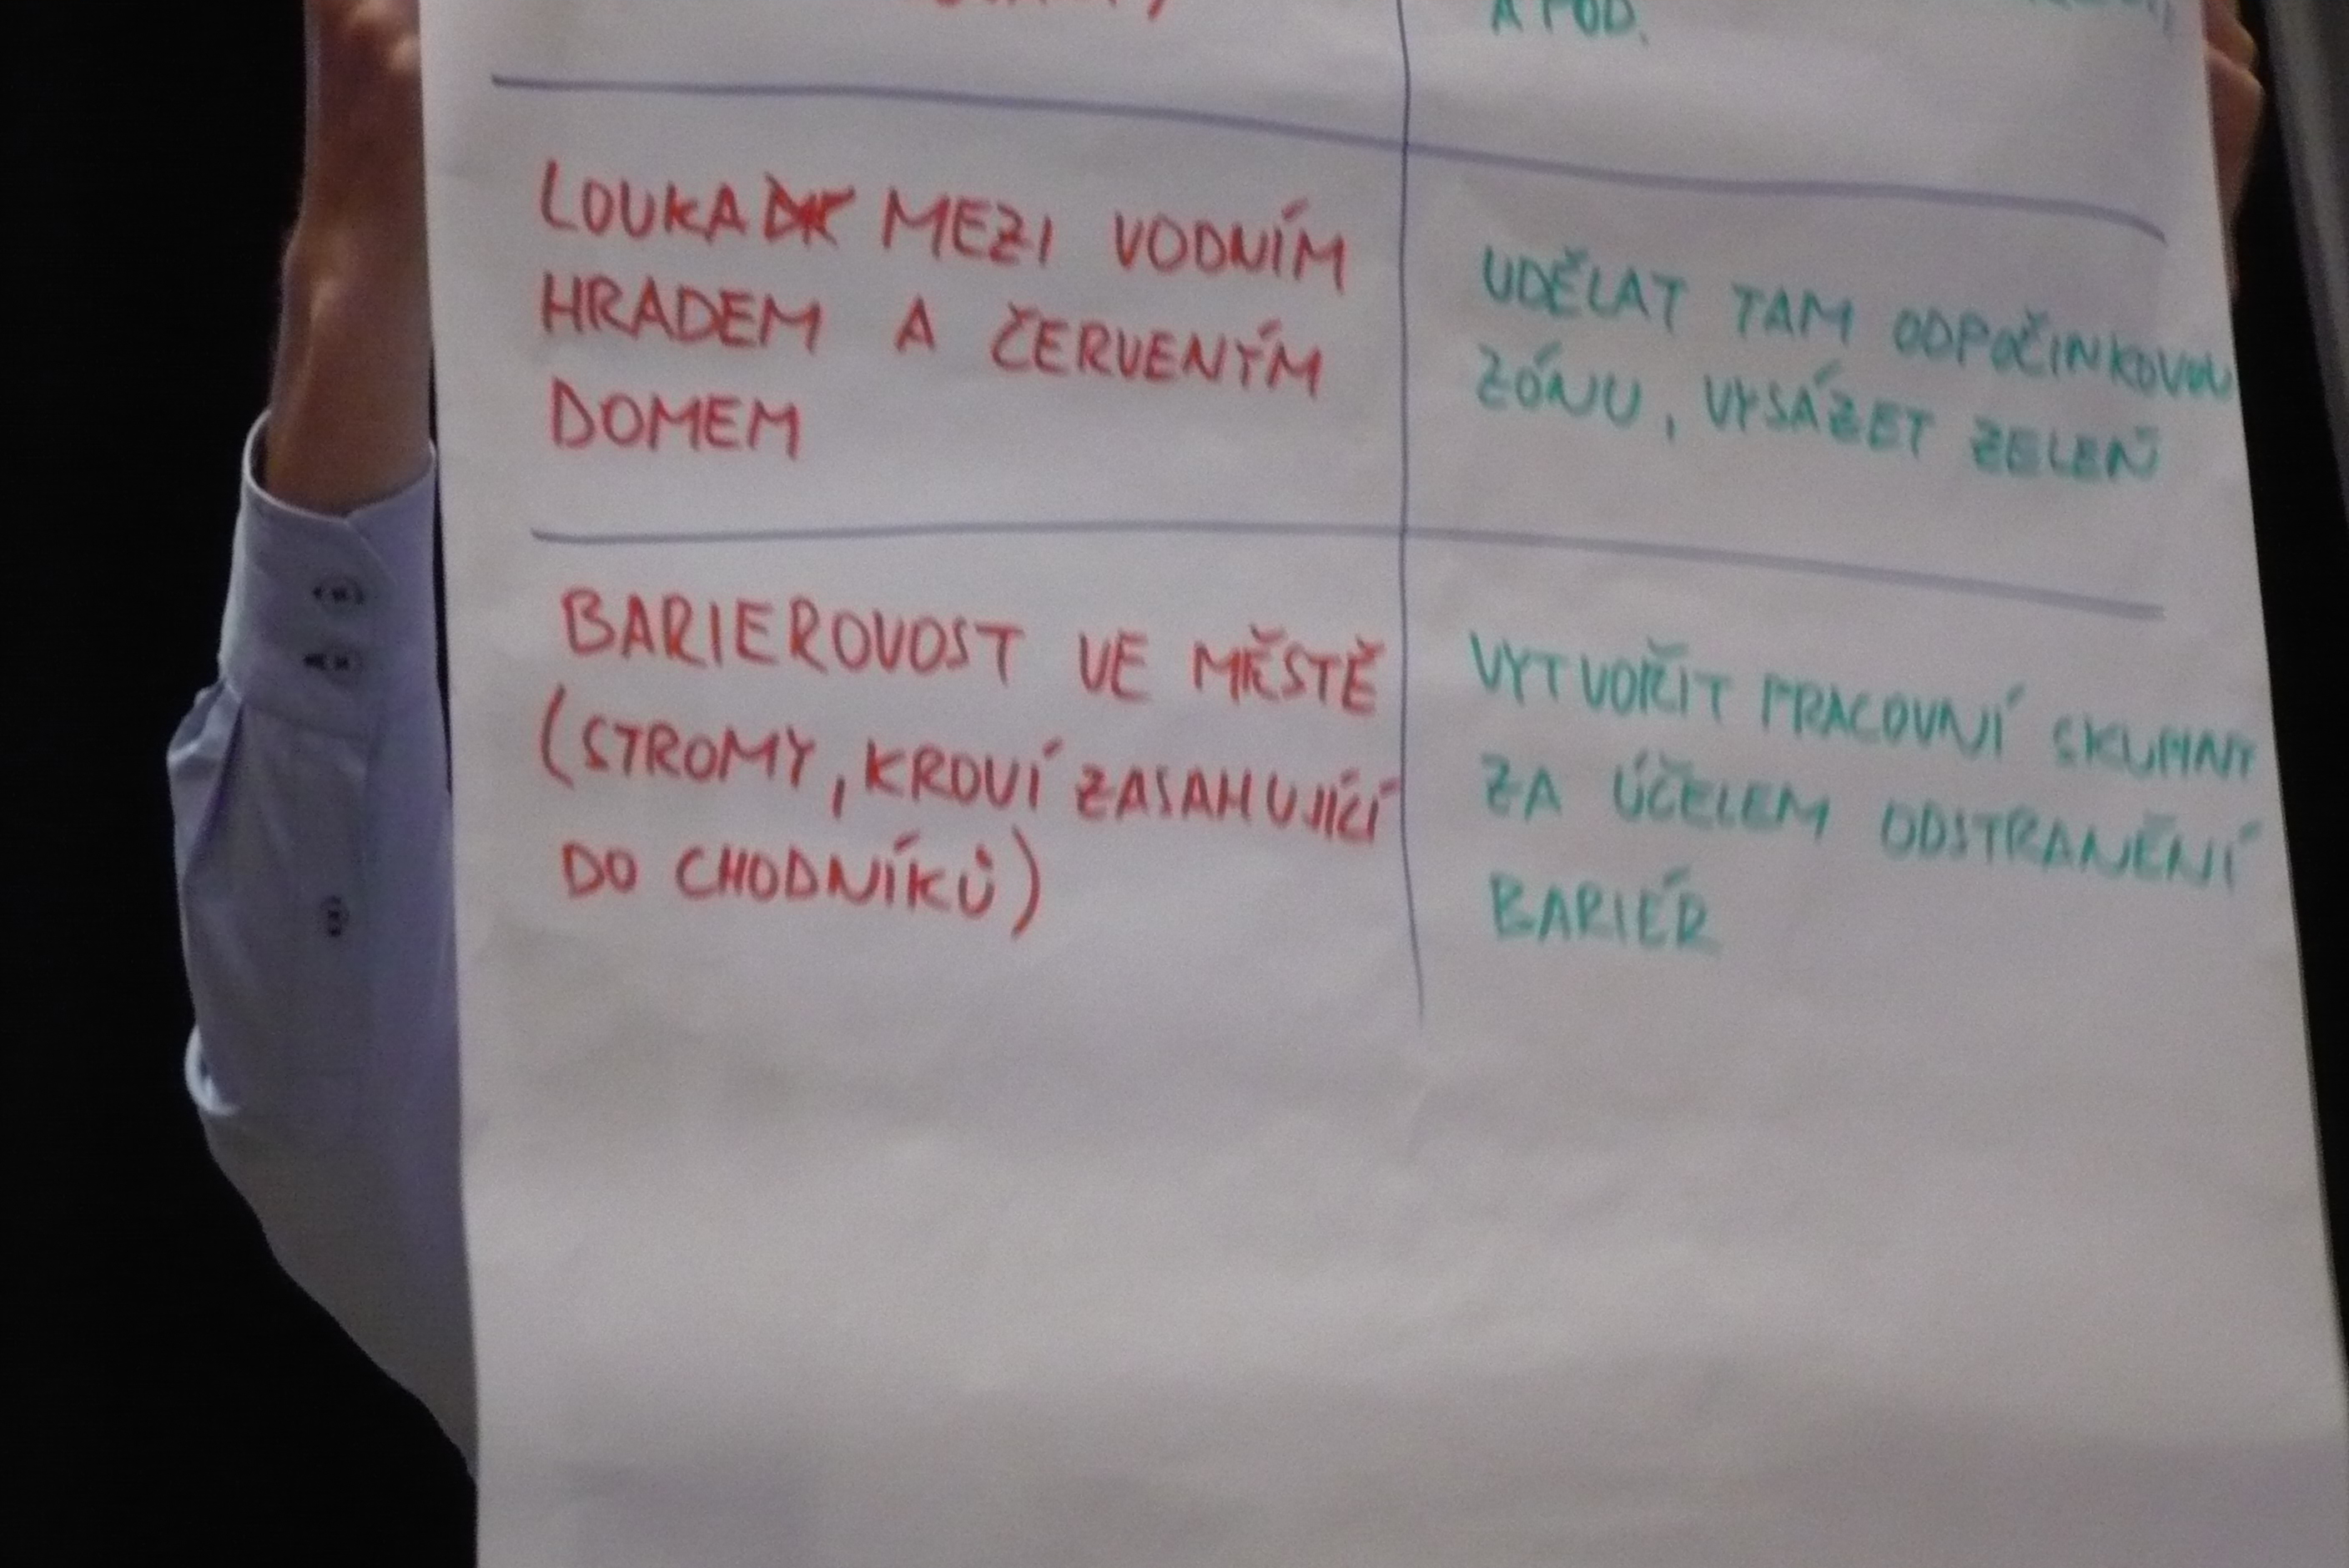 A POD.
LOUKA MEZI VODNÍM
HRADEM A ČERVENÝM
DOMEM
UDĚLAT TAM ODPOČINKOVOU
ZÓNU, VYSÁZET ZELEŇ
BARIEROVOST VE MĚSTĚ
(STROMY, KROVÍ ZASAHUJÍCÍ
DO CHODNÍKŮ)
VYTVOŘIT PRACOVNÍ SKUPINY
ZA ÚČELEM ODSTRANĚNÍ
BARIÉR